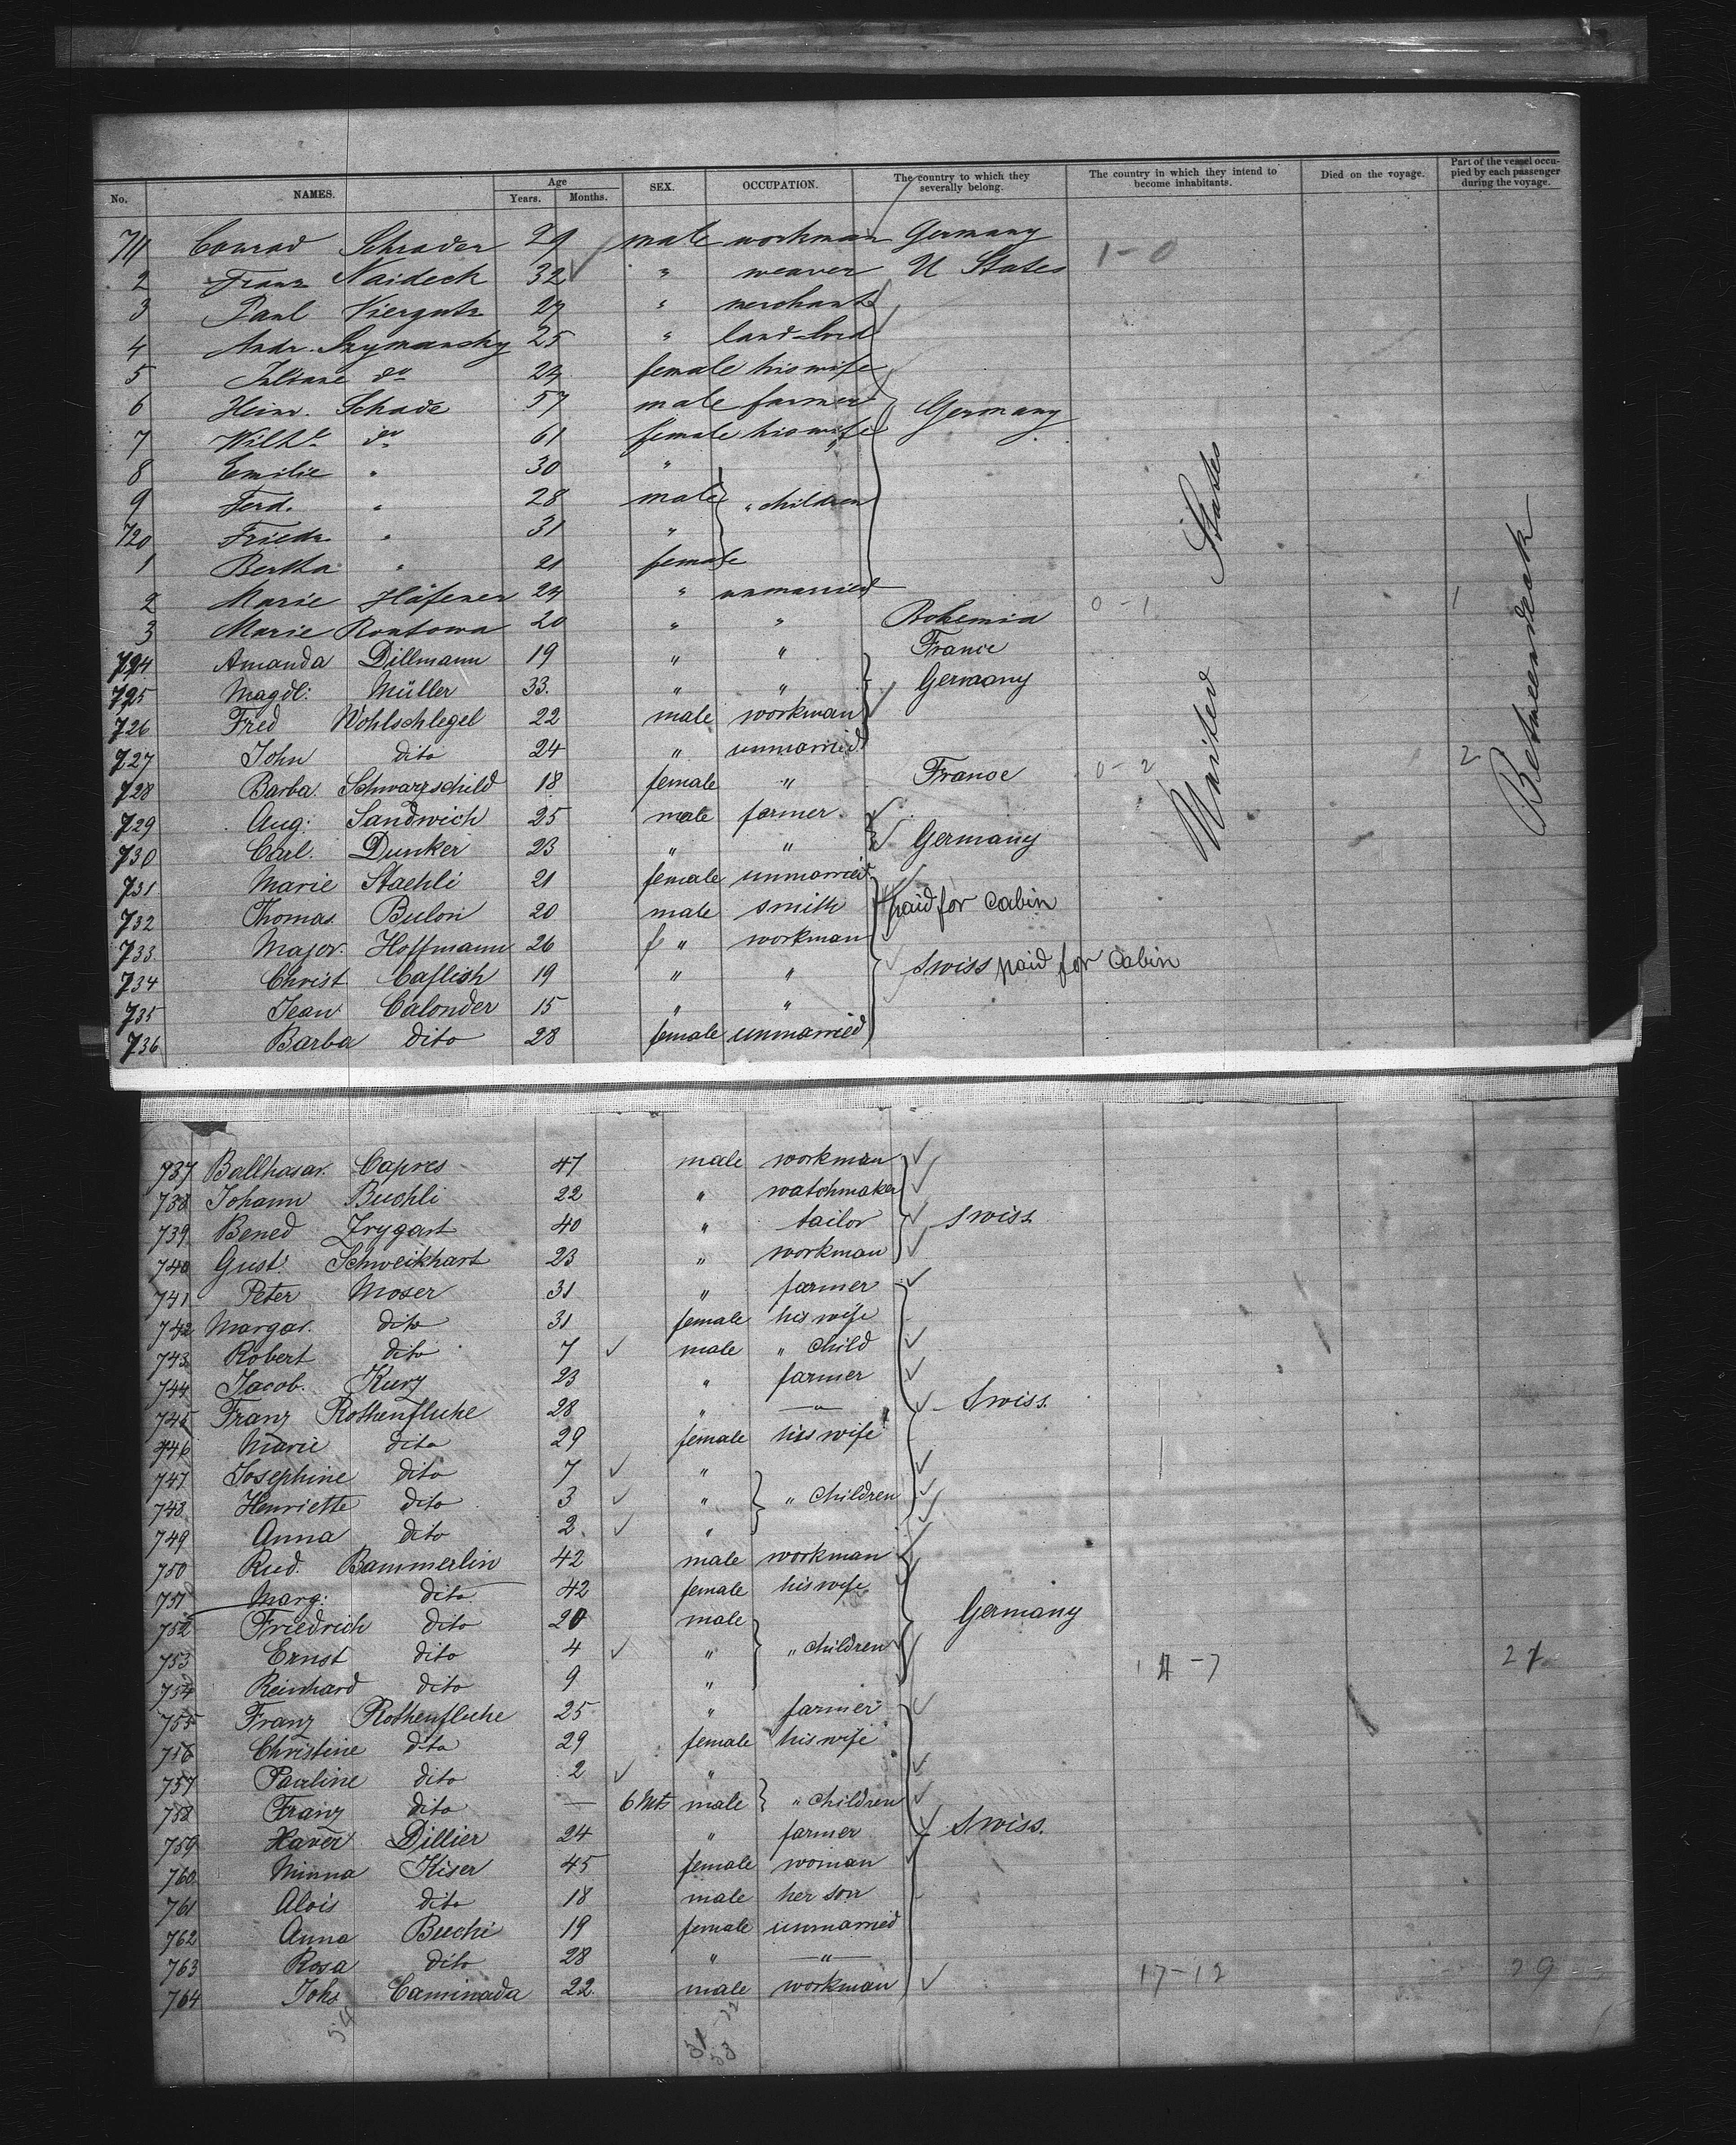 No. NAMES. Age Years. Months. SEX. OCCUPATION. The country to which they severally belong. The country in which they intend to become inhabitants. Died on the voyage. Part of the vessel occupied by each passenger during the voyage.
711 Conrad Schrader 29 male workman Germany 1-0
2 Franz Naideck 32 " weaver U States
3 Paul Viergutz 27 " merchant
4 Andr. Szymansky 25 " land-lord
5 do 24 female his wife
6 Heinr. Schade 57 male farmer Germany
7 Wilh. do 61 female his wife
8 Emilie " 30 "
9 Ferd. " 28 male " children
720 Friedr " 31 "
1 Bertha " 21 female
2 Marie Häfener 24 " unmarried
3 Marie Rontowa 20 " " Bohemia 0-1 1
724 Amanda Dillmann 19 " " France
725 Magdl: Müller 33. " " Germany
726 Fred Wohlschlegel 22 male workman
727 John dito 24 " unmarried
728 Barba. Schwarzschild 18 female " France 0-2 2
729 Aug: Sandwich 25 male farmer
730 Carl. Dunker 23 " " Germany
731 Marie Staehli 21 female unmarried
732 Thomas Bulon 20 male smith paid for Cabin
733 Major. Hoffmann 26 f " workman
734 Christ Caflish 19 " " Swiss paid for Cabin
735 Jean Calonder 15 " "
736 Barba dito 28 female unmarried
United States
Betweendeck
737 Balthasar. Capres 47 male workman
738 Johann Buchli 22 " watchmaker
739 Bened Zrygart 40 " tailor Swiss
740 Gust Schweikhart 23 " workman
741 Peter Moser 31 " farmer
742 Margar. dito 31 female his wife
743 Robert dito 7 male " Child
744 Jacob. Kurz 23 " farmer
745 Franz Rothenfluhe 28 " " Swiss.
746 Marie dito 29 female his wife
747 Josephine dito 7 "
748 Henriette dito 3 " " Children
749 Anna dito 2. "
750 Rud. Bammerlin 42 male workman
751 Marg: dito 42 female his wife
752 Friedrich dito 20 male Germany
753 Ernst dito 4 " " children 27
754 Reinhard dito 9 "
755 Franz Rothenfluhe 25 " farmer
756 Christine dito 29 female his wife
757 Pauline dito 2 "
758 Franz dito — 6 Mts male " children
759 Xaver Dillier 24 " farmer Swiss.
760 Minna Kiser 45 female woman
761 Alois dito 18 male her son
762 Anna Buchi 19 female unmarried
763 Rosa dito 28 " "
764 Johs Caminada 22. male workman 17-12 29
54 31 22
53